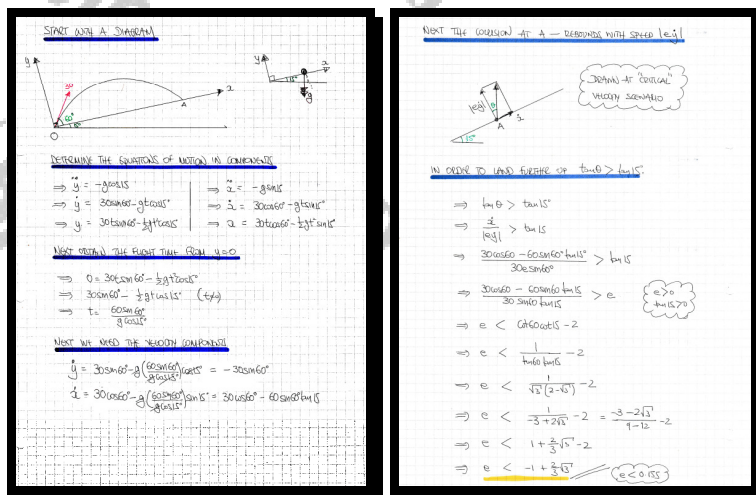 START WITH A DIAGRAM
y
30
60°
15°
A
x
O
y
x
15°
g
DETERMINE THE EQUATIONS OF MOTION IN COMPONENTS
⇒ ÿ = -gcos15
⇒ ẏ = 30sin60 - gtcos15°
⇒ y = 30tsin60 - ½gt²cos15°
⇒ ẍ = -gsin15
⇒ ẋ = 30cos60° - gtsin15°
⇒ x = 30tcos60° - ½gt²sin15°
NEXT OBTAIN THE FLIGHT TIME FROM y=0
⇒ 0 = 30tsin60° - ½gt²cos15°
⇒ 30sin60° - ½gtcos15° (t≠0)
⇒ t = 60sin60° / gcos15°
NEXT WE NEED THE VELOCITY COMPONENTS
ẏ = 30sin60° - g(60sin60°/gcos15°)cos15° = -30sin60°
ẋ = 30cos60° - g(60sin60°/gcos15°)sin15° = 30cos60° - 60sin60°tan15
NEXT THE COLLISION AT A — REBOUNDS WITH SPEED |eẏ|
|eẏ|
θ
ẋ
A
15°
DRAWN AT "CRITICAL"
VELOCITY SCENARIO
IN ORDER TO LAND FURTHER UP tanθ > tan15°
⇒ tanθ > tan15°
⇒ ẋ/|eẏ| > tan15
⇒ (30cos60 - 60sin60°tan15)/(30esin60°) > tan15
⇒ (30cos60 - 60sin60°tan15)/(30sin60tan15) > e
e>0
tan15>0
⇒ e < cot60cot15 - 2
⇒ e < 1/(tan60tan15) - 2
⇒ e < 1/(√3(2-√3)) - 2
⇒ e < 1/(-3+2√3) - 2 = (-3-2√3)/(9-12) - 2
⇒ e < 1 + ⅔√3 - 2
⇒ e < -1 + ⅔√3
e<0.155